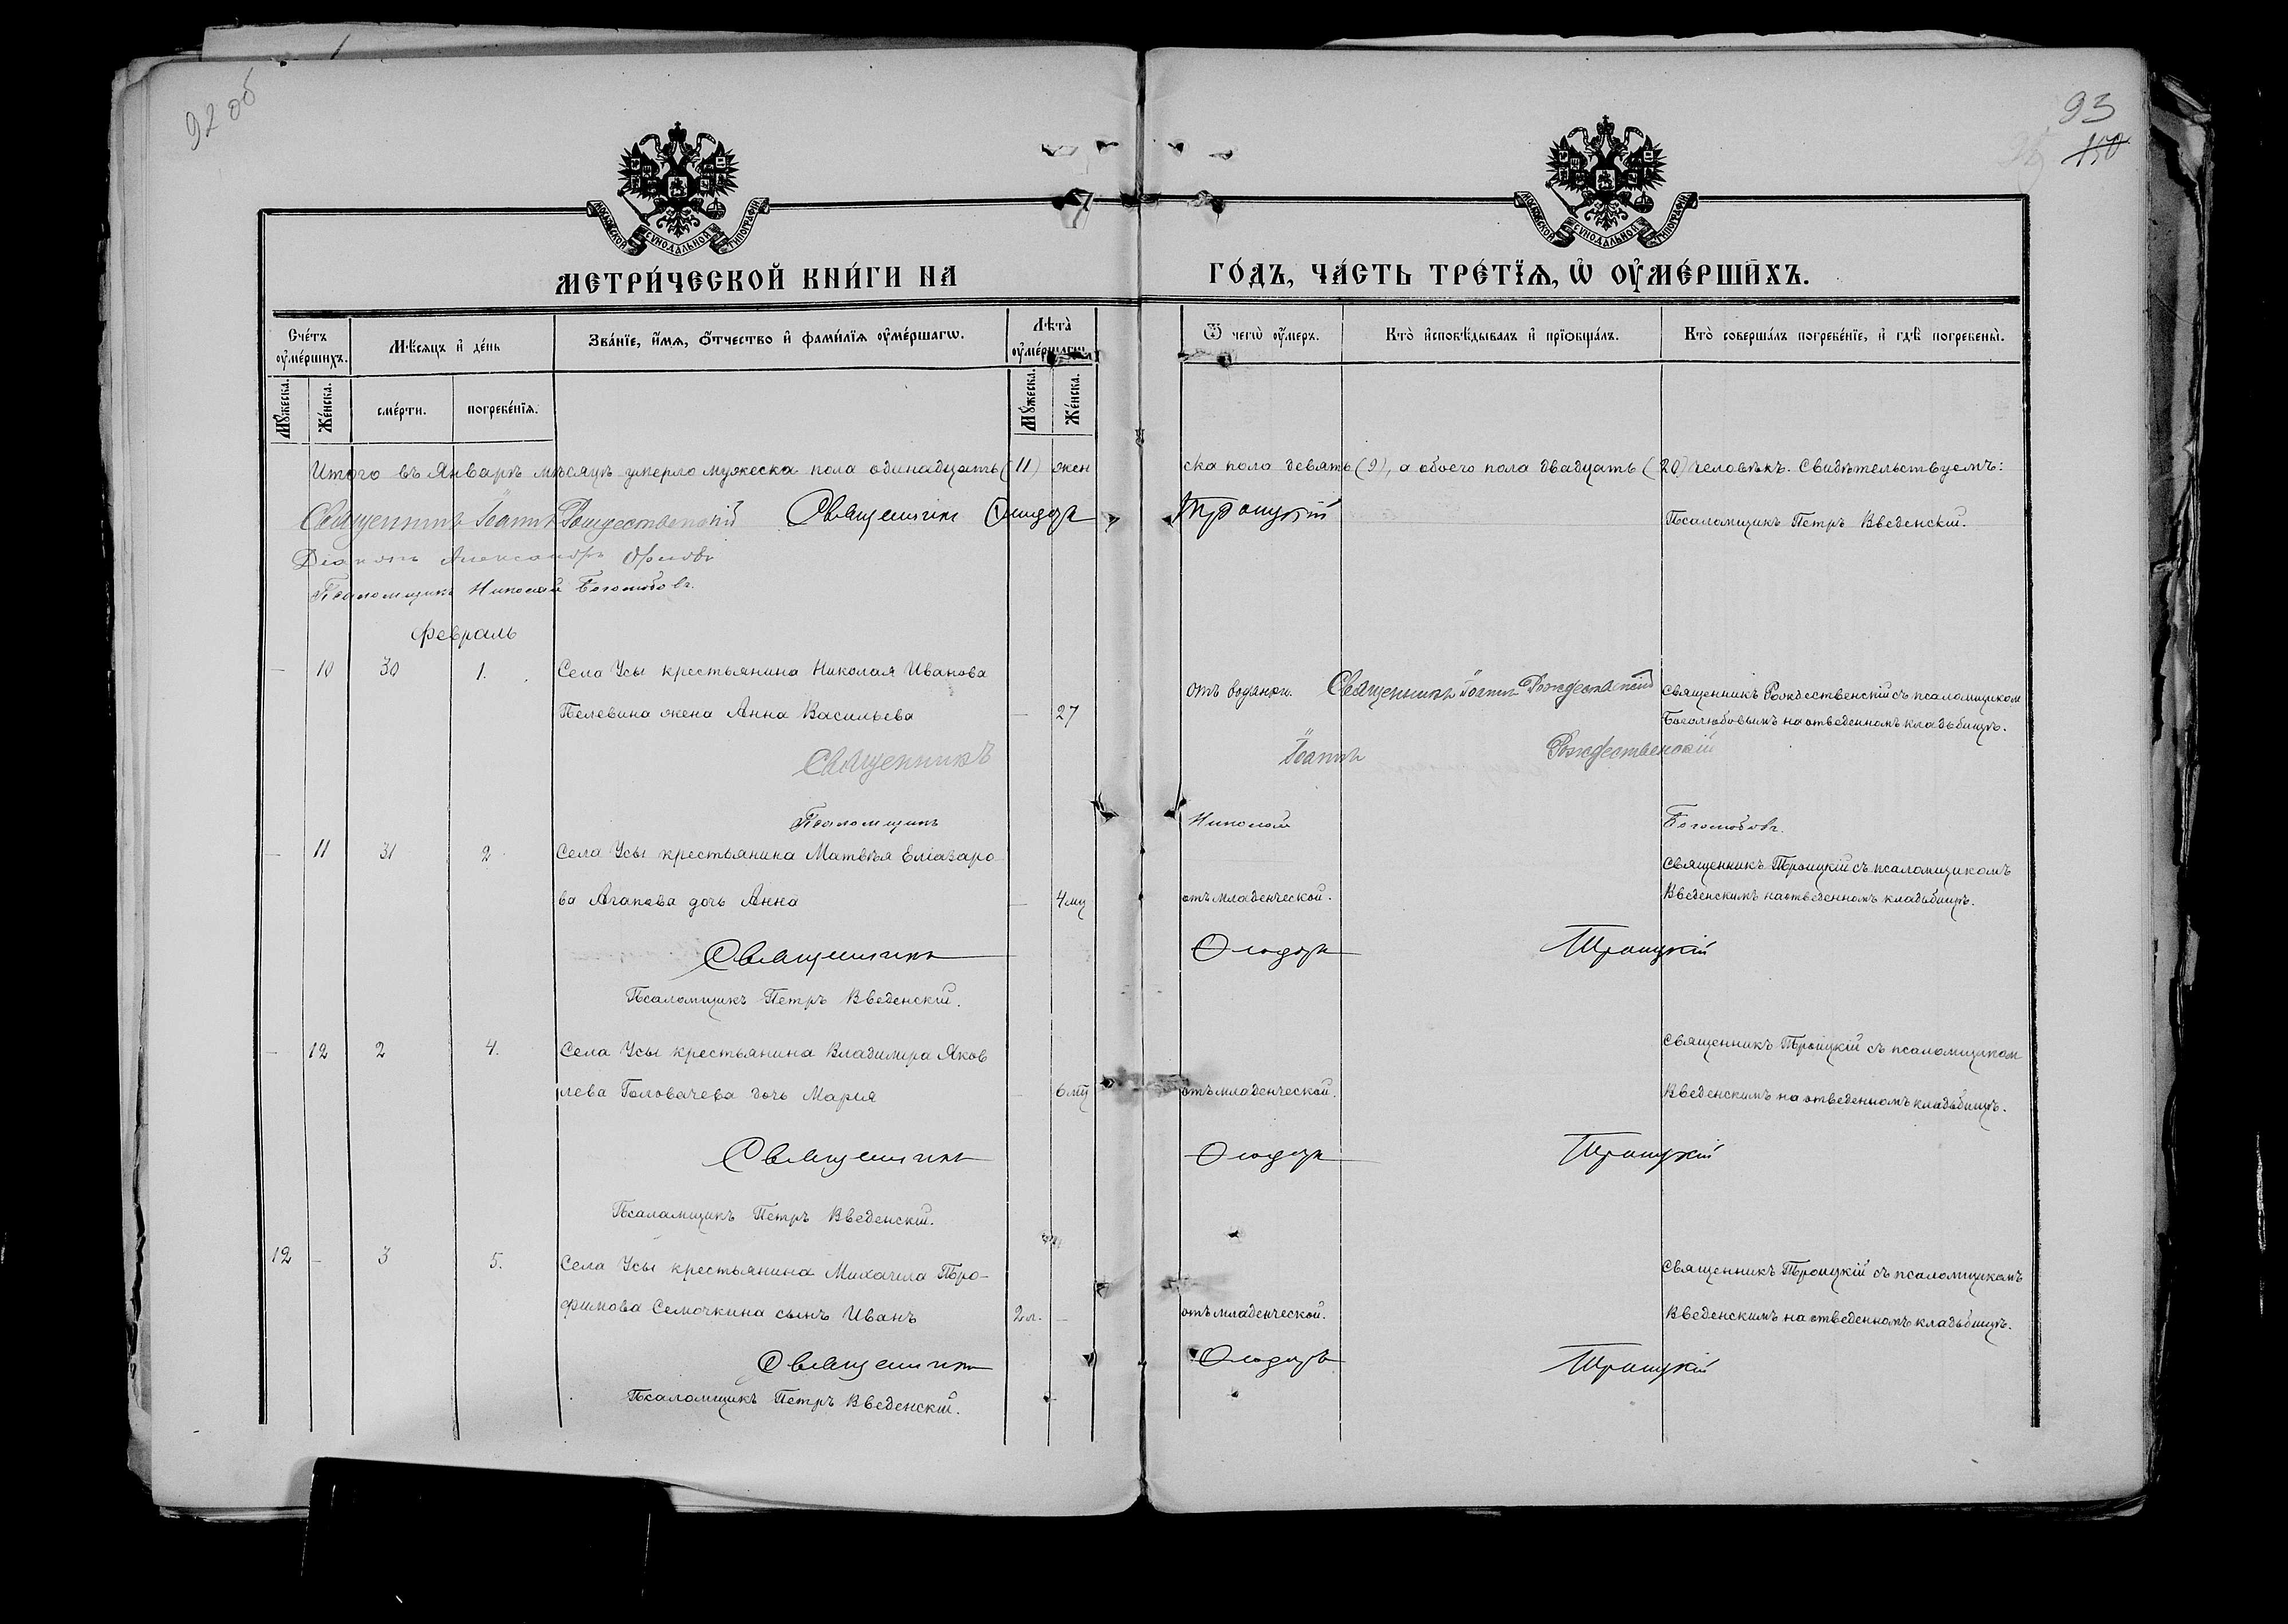 92 об
93
150
МОСКОВСКОЙ СѴНОДАЛЬНОЙ ТИПОГРАФІИ
МОСКОВСКОЙ СѴНОДАЛЬНОЙ ТИПОГРАФІИ
МЕТРИ́ЧЕСКОЙ КНИ́ГИ НА
ГО́ДЪ, ЧА́СТЬ ТРЕ́ТЇѦ, Ѡ҆ ОУ҆МЕ́РШИХЪ.
Сче́тъ оу҆ме́ршихъ.
Мѣ́сѧцъ и҆ де́нь
Зва́нїе, и҆́мѧ, ѻ҆́тчество и҆ фами́лїѧ оу҆ме́ршагѡ.
Лѣ̀та оу҆ме́ршагѡ.
Ѿ чегѡ̀ оу҆́меръ.
Кто̀ и҆сповѣ́дывалъ и҆ прїѡбща́лъ.
Кто̀ соверша́лъ погребе́нїе, и҆ гдѣ̀ погребены̀.
Мꙋ́жеска.
Же́нска.
сме́рти.
погребе́нїѧ.
Мꙋ́жеска.
Же́нска.
Итого въ Январѣ мѣсяцѣ умерло мужеска пола одинадцать (11) жен
ска пола девять (9), а обоего пола двадцать (20) человѣкъ. Свидѣтельствуемъ:
Священникъ Іоаннъ Рождественскій Священникъ Ѳиодоръ
Троицкій
Псаломщикъ Петръ Введенскій.
Діаконъ Александръ Орловъ
Псаломщикъ Николай Боголюбовъ.
Февраль
— 10 30 1. Села Усы крестьянина Николая Иванова
Пелевина жена Анна Васильева — 27
отъ водянки. Священникъ Іоаннъ Рождественскій
Священникъ Рождественскій съ псаломщиком
Боголюбовымъ на отведенномъ кладбищѣ.
Священникъ Іоаннъ Рождественскій
Псаломщикъ Николай Боголюбовъ.
— 11 31 2 Села Усы крестьянина Матвѣя Еліазаро
ва Агапова дочь Анна — 4 мц
отъ младенческой.
Священникъ Троицкій съ псаломщикомъ
Введенскимъ на отведенномъ кладьбищѣ.
Священникъ Ѳиодоръ Троицкій
Псаломщикъ Петръ Введенскій.
— 12 2 4. Села Усы крестьянина Владимира Яков
лева Головачева дочь Мария — 6 мц
отъ младенческой.
Священникъ Троицкій съ псаломщиком
Введенскимъ на отведенномъ кладьбищѣ.
Священникъ Ѳиодоръ Троицкій
Псаломщикъ Петръ Введенскій.
12 — 3 5. Села Усы крестьянина Михаила Тро-
фимова Семочкина сынъ Иванъ 2 л. —
отъ младенческой.
Священникъ Троицкій съ псаломщикомъ
Введенскимъ на отведенномъ кладьбищѣ.
Священникъ Ѳиодоръ Троицкій
Псаломщикъ Петръ Введенскій.